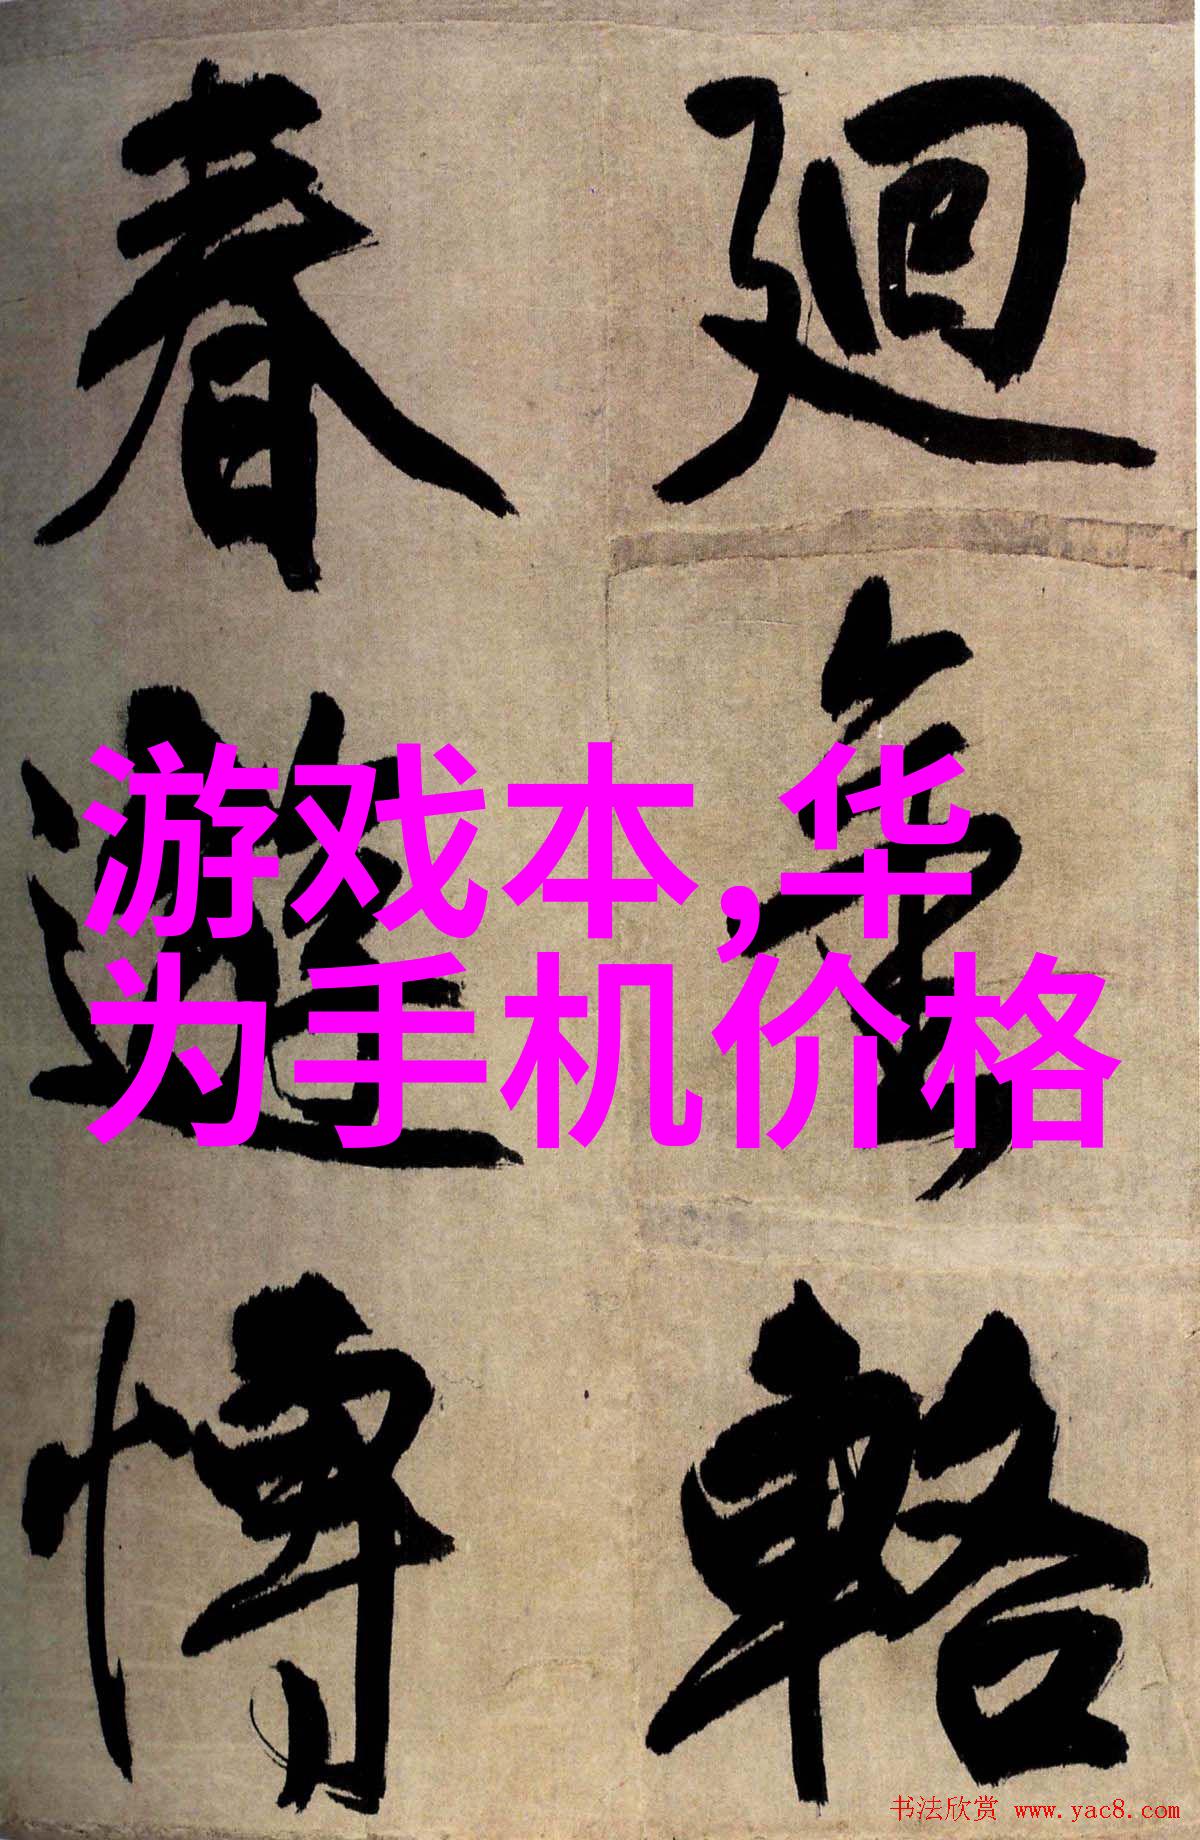 廻輅
春愽
游戏本,华
为手机价格
书法欣赏 www.yac8.com